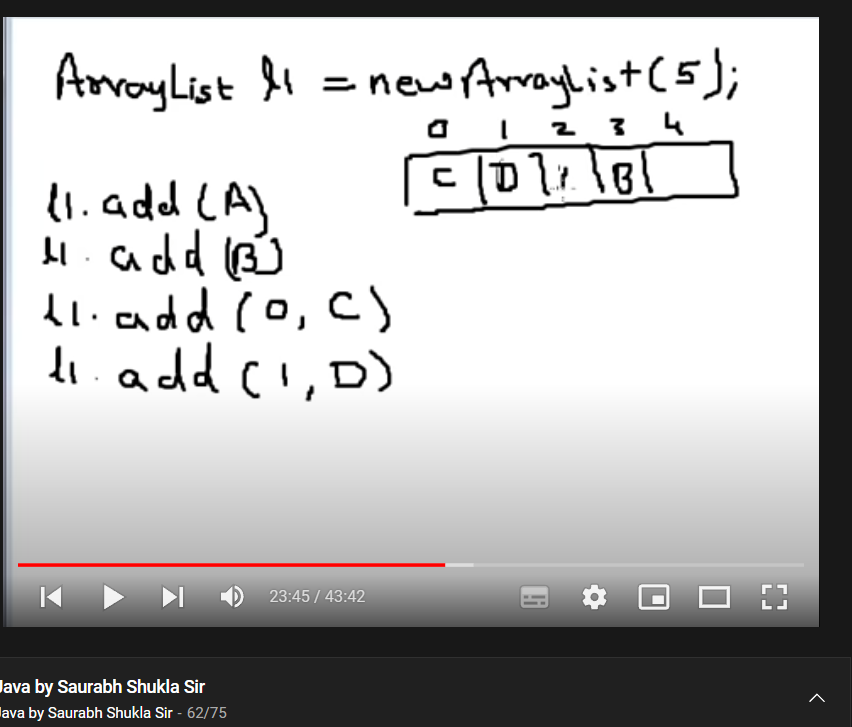 ArrayList l1 = new ArrayList(5);
0 1 2 3 4
C D B
l1.add(A)
l1.add(B)
l1.add(0, C)
l1.add(1, D)
23:45 / 43:42
Java by Saurabh Shukla Sir
Java by Saurabh Shukla Sir - 62/75